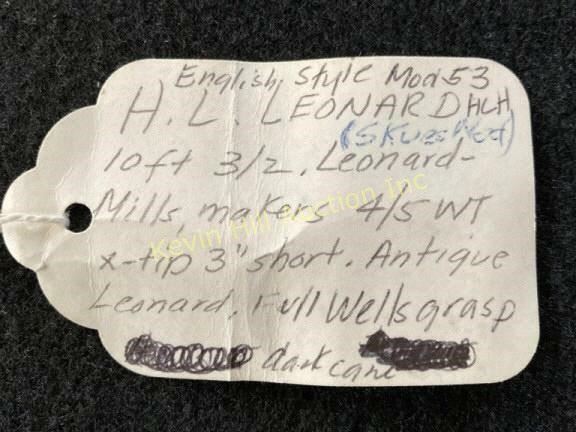 English style Mod 53
H. L. LEONARD HLH
10ft 3/2. Leonard-
Mills, makers 4/5 WT
x-tip 3" short. Antique
Leonard. Full Wells grasp
dark cane
Kevin Hill Auction Inc